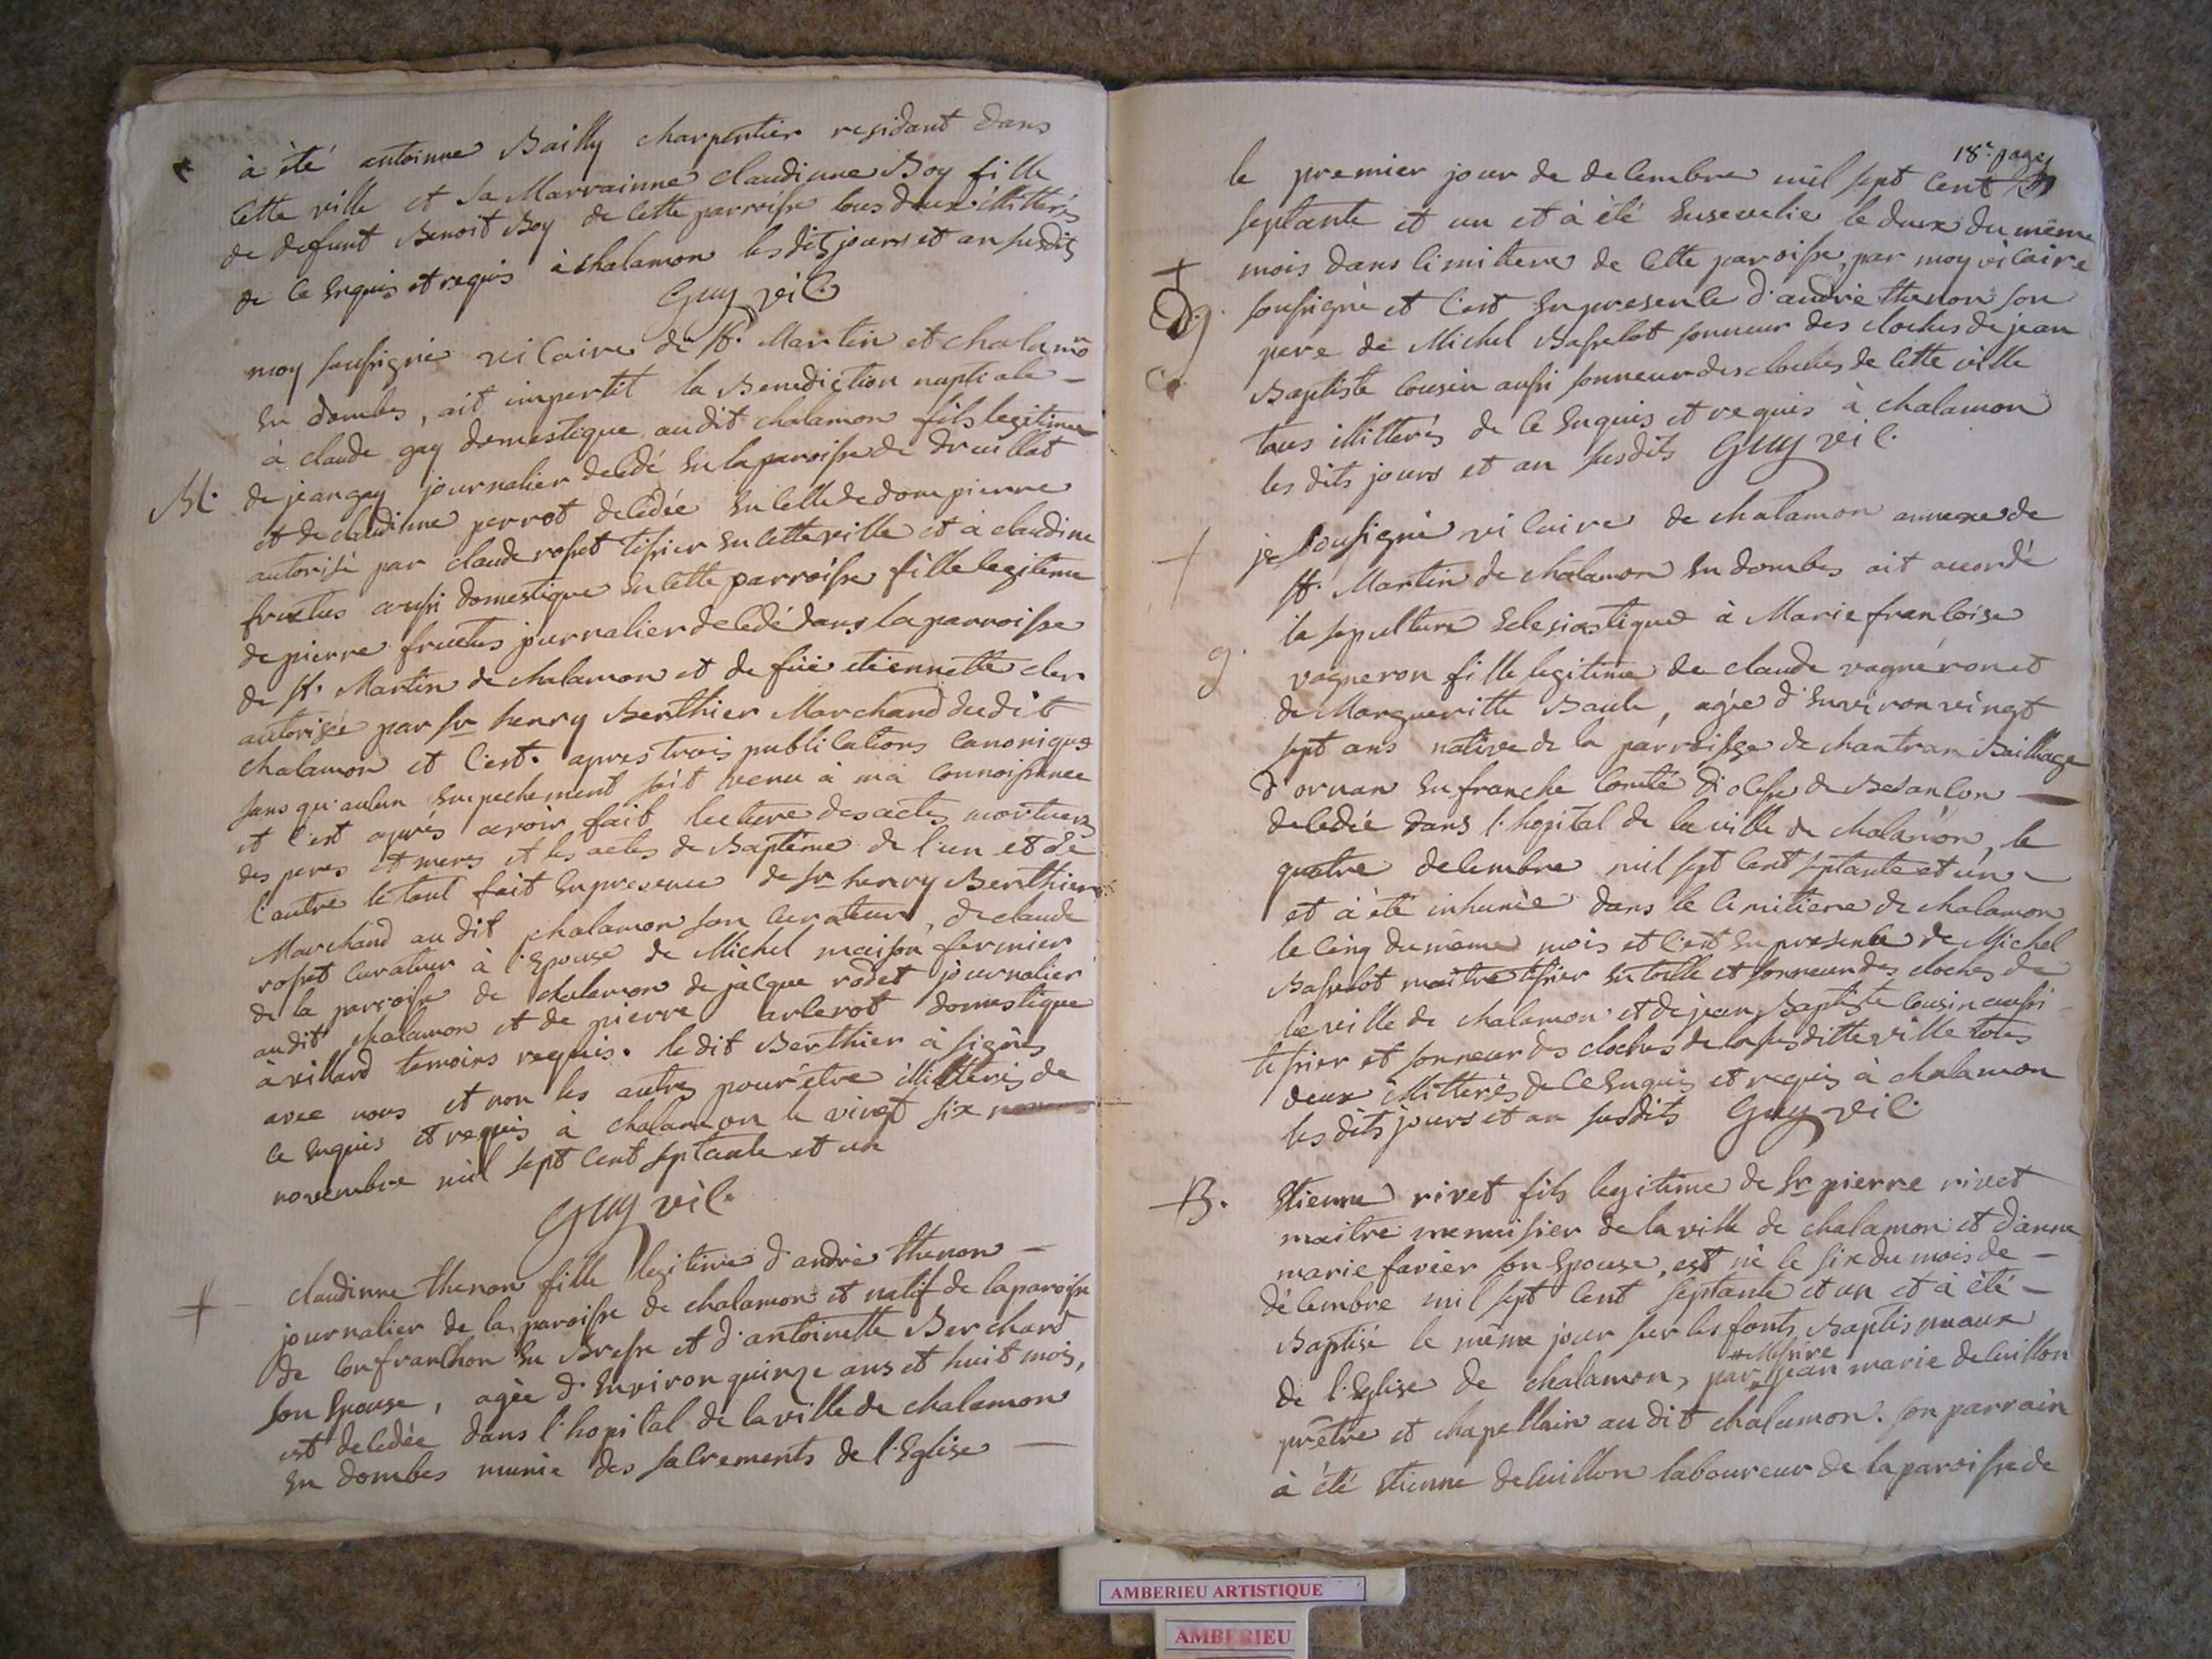 à été antoinne Bailly charpentier residant dans
cette ville et sa Marrainne claudinne Boy fille
de defunt Benoit Boy de cette parroisse tous deux illitterés
de ce enquis et requis à chalamon les dits jours et an susdits
Guy vic.
moy soussigné vicaire de St. Martin et chalamon
en dombes, ait impertit la Benediction nuptiale -
à claude gay domestique audit chalamon fils legitime
M. de jean gay journalier decedé en la paroisse de druillat
et de claudinne perrot decedée en celle de dompierre
autorisé par claude rosset tissier en cette ville et à claudine
fructus aussi domestique en cette parroisse fille legitime
de pierre fructus journalier decedé dans la parroisse
de St. Martin de chalamon et de füe etiennette cler
autorisée par Sr henry Berthier Marchand dudit
chalamon et c'est apres trois publications canonique
sans qu'aucun empechement soit venu à ma connoissance
et c'est aprés avoir fait lecture des actes mortuers
des peres et meres et les actes de Baptême de l'un et de
l'autre le tout fait en presence de Sr henry Berthier
Marchand au dit chalamon son curateur, de claude
rosset curateur à l'epouse de Michel maison fermier
de la parroisse de chalamon de jàcque rodet journalier
audit chalamon et de pierre arlerot domestique
à villard temoins requis. le dit Berthier à signés
avec nous et non les autres pour être illitterés de
ce enquis et requis à chalamon le vingt six
novembre mil sept cent septante et un
Guy vic.
claudinne thenon fille legitime d'andré thenon -
journalier de la paroisse de chalamon et natif de la paroisse
de confranchon en Bresse et d'antoinette Berchard
son Epouse, agée d'environ quinze ans et huit mois,
est decedée dans l'hopital de la ville de chalamon
en dombes munie des sacrements de l'Eglise -
18e page
le premier jour de decembre mil sept cent
septante et un et à été ensevelie le deux du même
mois dans cimittere de cette paroisse, par moy vicaire
soussigné et c'est en presence d'andré thenon son
pere de Michel Basselot sonneur des cloches de jean
Baptiste cousin aussi sonneur des cloches de cette ville
tous illitterés de ce enquis et requis à chalamon
les dits jours et an susdits Guy vic.
je soussigné vicaire de chalamon annexe de
St. Martin de chalamon en dombes ait accordé
la sepulture eclesiastique à Marie francoise
g. vagneron fille legitime de claude vagneron et
de Margueritte Baule, agée d'environ vingt
sept ans native de la parroisse de chantran Bailliage
d'ornan en franche Comté diocesse de Besancon -
decedée dans l'hopital de la ville de chalamon, le
quatre decembre mil sept cent septante et un -
et à été inhumée dans le cimitiere de chalamon
le cinq du même mois et c'est en presence de Michel
Basselot maitre tissier en toille et sonneur des cloches de
la ville de chalamon et de jean Baptiste cousin aussi
tissier et sonneur des cloches de la susditte ville tous
deux illitterés de ce enquis et requis à chalamon
les dits jours et an susdits Guy vic.
B. Etienne rivet fils legitime de Sr pierre rivet
maitre menuisier de la ville de chalamon et d'anne
marie favier son Epouse, est né le six du mois de -
décembre mil sept cent septante et un et à été -
Baptisé le même jour sur les fonts Baptismaux
Messire
de l'Eglise de chalamon, par jean marie decuillon
prêtre et chapellain au dit chalamon. son parrain
à été Etienne decuillon laboureur de la paroisse de
AMBERIEU ARTISTIQUE
AMBERIEU